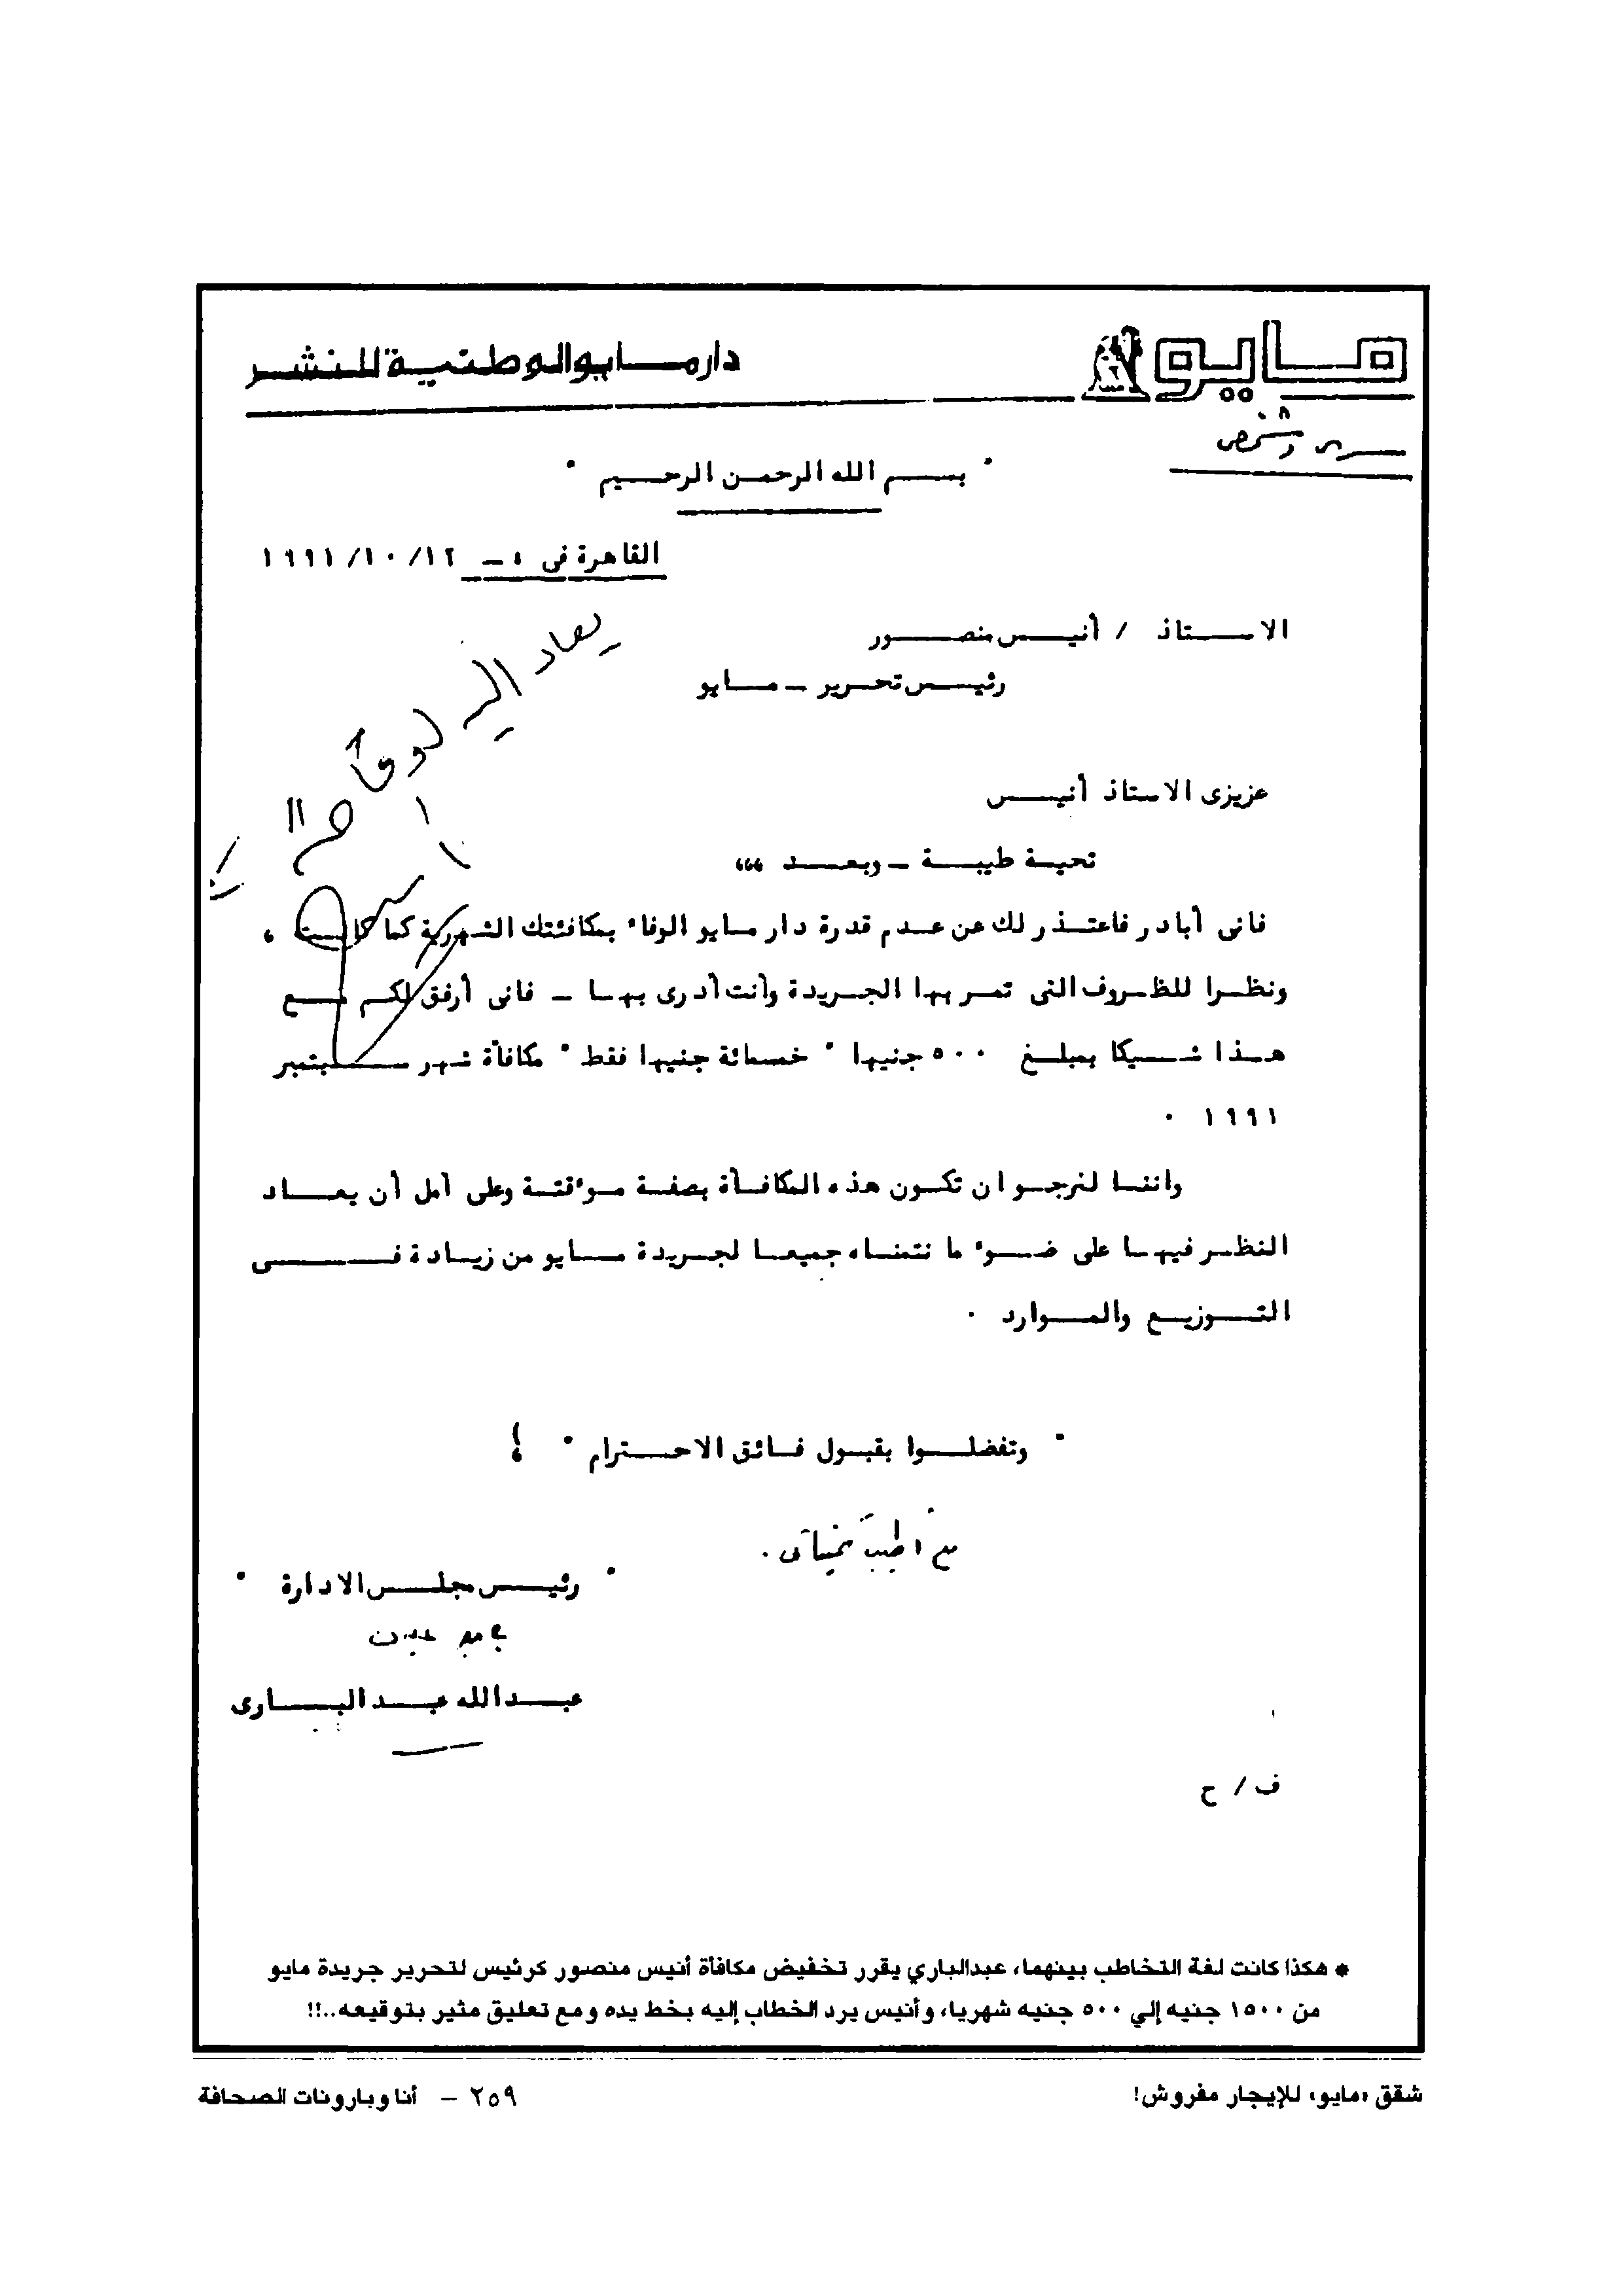 مايو
دار مايو الوطنية للنشر
سرى وشخصى
" بسم الله الرحمن الرحيم "
القاهرة فى ، ـ ١٩٩١/١٠/١٢
الاستاذ / أنيس منصور
رئيس تحرير ـ مايو
يعاد إليه
عزيزى الاستاذ أنيس
تحية طيبة ـ وبعد ،،،
فانى أبادر فاعتذر لك عن عدم قدرة دار مايو الوفاء بمكافئتك الشهرية كما كانت ،
ونظرا للظروف التى تمر بها الجريدة وأنت أدرى بها ـ فانى أرفق لكم مع
هذا شيكا بمبلغ ٥٠٠ جنيها " خمسمائة جنيها فقط " مكافأة شهر سبتمبر
١٩٩١ .
واننا لنرجو ان تكون هذه المكافأة بصفة موءقتة وعلى أمل أن يعاد
النظر فيها على ضوء ما نتمناه جميعا لجريدة مايو من زيادة فى
التوزيع والموارد .
" وتفضلوا بقبول فائق الاحترام " ؛
مع أطيب تمنياتى .
" رئيس مجلس الادارة "
عبدالله عبد البارى
ف / ح
* هكذا كانت لغة التخاطب بينهما، عبدالباري يقرر تخفيض مكافأة أنيس منصور كرئيس لتحرير جريدة مايو
من ١٥٠٠ جنيه إلي ٥٠٠ جنيه شهريا، وأنيس يرد الخطاب إليه بخط يده ومع تعليق مثير بتوقيعه..!!
شقق «مايو» للإيجار مفروش!
٢٥٩ - أنا وبارونات الصحافة